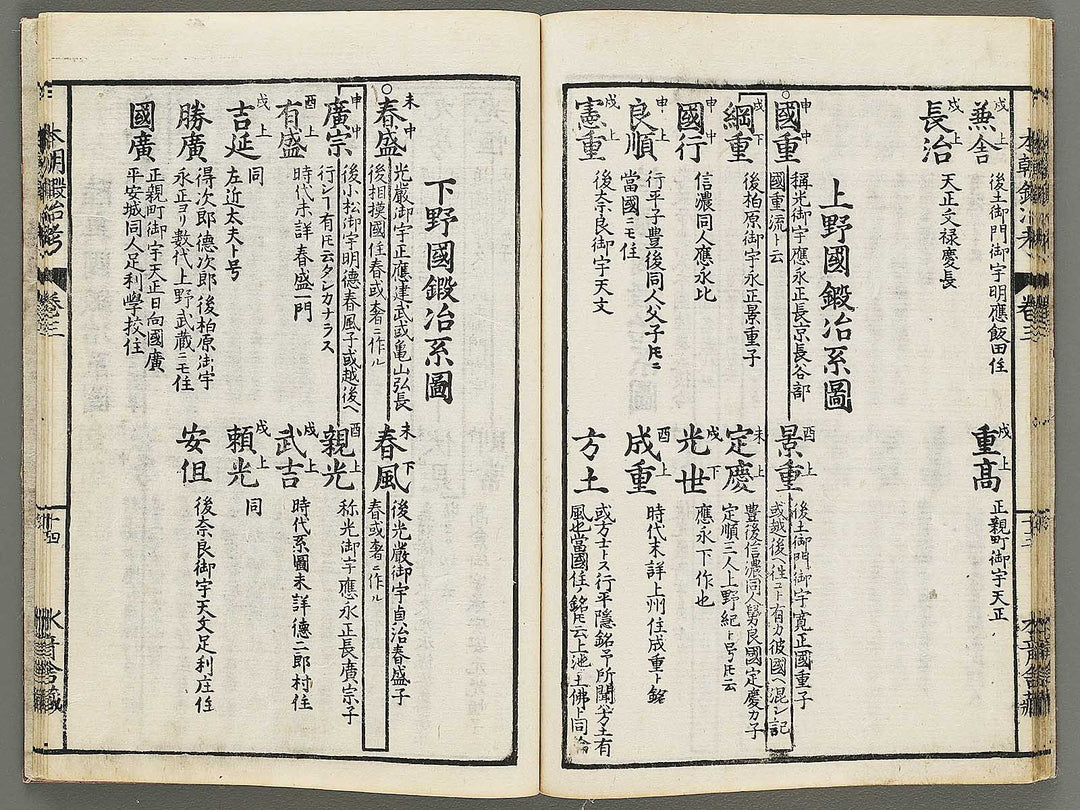 兼舎 戌上
後土御門御宇明應飯田住
重髙 戌上
正親町御宇天正
長治 戌上
天正文禄慶長
上野國鍛冶系圖
國重 申中
稱光御宇應永正長京長谷部
國重流ト云
景重 酉上
後土御門御宇寛正國重子
或越後ヘ往コト有カ彼國ヘ混シ記
綱重 戌下
後柏原御宇永正景重子
定慶 未上
豊後信濃同人舅良國定慶カ子
定順三人上野紀ト号ス云
國行 申中
信濃同人應永比
光世 戌下
應永下作也
良順 申上
行平子豊後同人父子ニ
當國ニモ住
成重 酉上
時代未詳上州住成重ト銘
憲重 戌上
後奈良御宇天文
方士
或方士トス行平隱銘
風也當國住ノ銘
下野國鍛冶系圖
春盛 未中
光嚴御宇正應建武或亀山弘長
後相摸國住春或奢ニ作ル
春風 未下
後光嚴御宇貞治春盛子
春或奢ニ作ル
廣宗 申中
後小松御宇明德春風子或越後ヘ
行シ有ト云タシカナラス
親光 酉上
称光御宇應永正長廣宗子
有盛 酉上
時代未詳春盛一門
武吉 戌上
時代系圖未詳德二郎村住
吉延 戌上
同
左近太夫ト号
頼光 戌上
同
勝廣
得次郎德次郎後柏原御宇
永正ヨリ數代上野武蔵ニモ住
安伹
後奈良御宇天文足利庄住
國廣
正親町御宇天正日向國廣
平安城同人足利學校住
本朝鍛冶考
卷三
十四